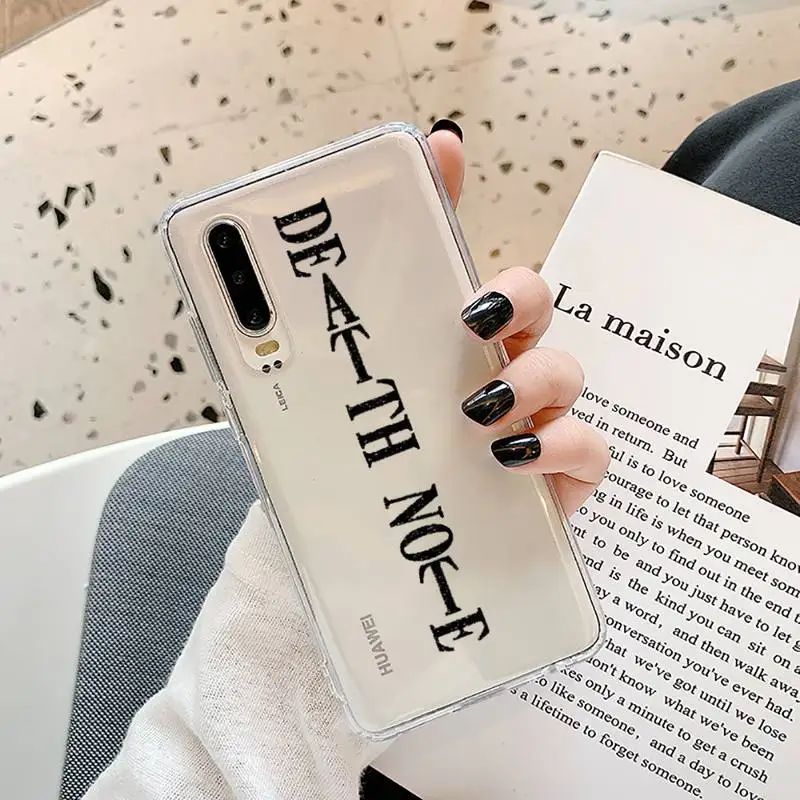 DEATH NOTE
LEICA
HUAWEI
La maison
love someone and
ved in return. But
ful is to love someone
courage to let that person know
ng in life is when you meet som
o you only to find out in the end t
nt to be and you just have to let g
end is the kind you can sit on a
ay a word, and then walk awa
conversation you've ever had.
hat we've got until we lose
don't know what we've been
kes only a minute to get a crush
o like someone, and a day to love
s a lifetime to forget someone.